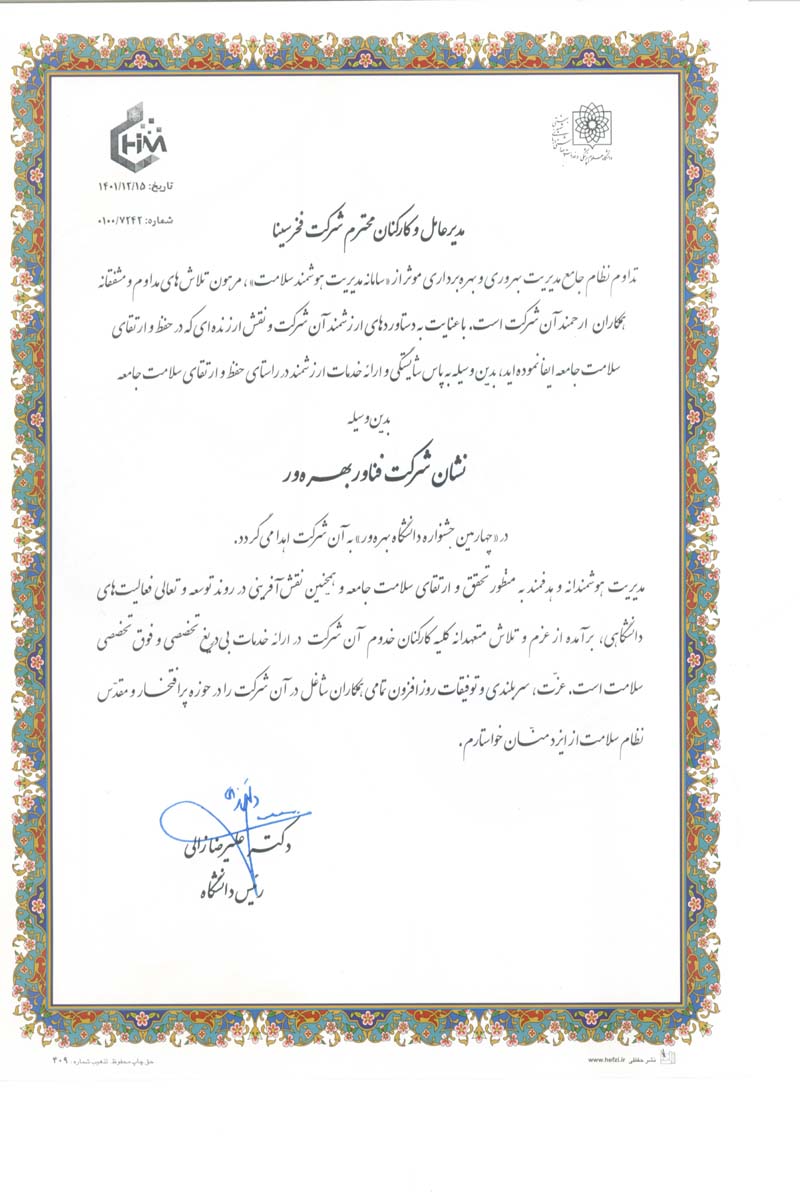 دانشگاه علوم پزشکی و خدمات
CHM
تاریخ: ۱۴۰۱/۱۲/۱۵
شماره: ۰۱۰۰/۷۲۴۲
مدیرعامل و کارکنان محترم شرکت فخرسینا
تداوم نظام جامع مدیریت بهروری و بهره برداری موثر از «سامانه مدیریت هوشمند سلامت»، مرهون تلاش های مداوم و مشفقانه
همکاران ارجمند آن شرکت است. با عنایت به دستاوردهای ارزشمند آن شرکت و نقش ارزنده ای که در حفظ و ارتقای
سلامت جامعه ایفا نموده اید، بدین وسیله به پاس شایستگی و ارائه خدمات ارزشمند در راستای حفظ و ارتقای سلامت جامعه
بدین وسیله
نشان شرکت فناور بهره ور
در «چهارمین جشنواره دانشگاه بهره ور» به آن شرکت اهدا می گردد.
مدیریت هوشمندانه و هدفمند به منظور تحقق و ارتقای سلامت جامعه و همچنین نقش آفرینی در روند توسعه و تعالی فعالیت های
دانشگاهی، برآمده از عزم و تلاش متعهدانه کلیه کارکنان خدوم آن شرکت در ارائه خدمات بی دریغ تخصصی و فوق تخصصی
سلامت است. عزّت، سربلندی و توفیقات روزافزون تمامی همکاران شاغل در آن شرکت را در حوزه پرافتخار و مقدّس
نظام سلامت از ایزد منّان خواستارم.
دکتر علیرضا زالی
رئیس دانشگاه
نشر حفظی www.hefzi.ir
حق چاپ محفوظ. تذهیب شماره: ۴۰۹